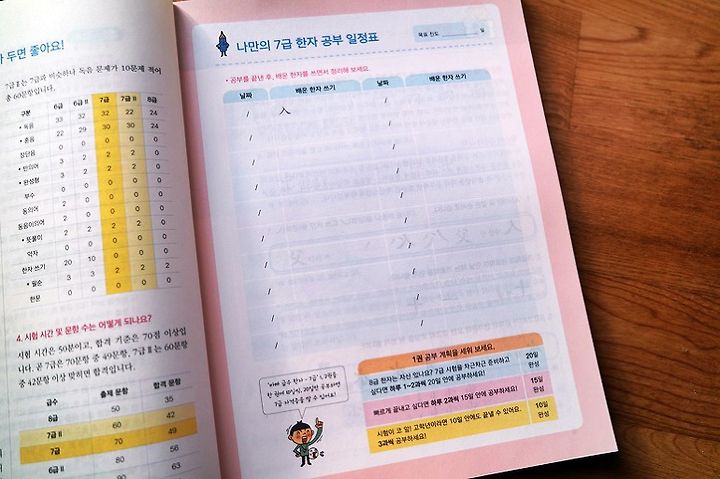 두면 좋아요!
7급Ⅱ는 7급과 비슷하나 독음 문제가 10문제 적어
총 60문항입니다.
구분 6급 6급Ⅱ 7급 7급Ⅱ 8급
• 독음 33 32 32 22 24
• 훈음 22 29 30 30 24
장단음 0 0 0 0 0
• 반의어 3 2 2 2 0
• 완성형 3 2 2 2 0
부수 0 0 0 0 0
동의어 2 0 0 0 0
동음이의어 2 0 0 0 0
• 뜻풀이 2 2 2 2 0
약자 0 0 0 0 0
한자 쓰기 20 10 0 0 0
• 필순 3 3 2 2 2
한문 0 0 0 0 0
4. 시험 시간 및 문항 수는 어떻게 되나요?
시험 시간은 50분이고, 합격 기준은 70점 이상입
니다. 곧 7급은 70문항 중 49문항, 7급Ⅱ는 60문항
중 42문항 이상 맞히면 합격입니다.
급수 출제 문항 합격 문항
8급 50 35
7급Ⅱ 60 42
7급 70 49
6급Ⅱ 80 56
90 63
나만의 7급 한자 공부 일정표
목표 진도 일
• 공부를 끝낸 후, 배운 한자를 쓰면서 정리해 보세요.
날짜 배운 한자 쓰기 날짜 배운 한자 쓰기
/ 入 /
/ /
/ /
/ /
/ /
/ /
/ /
/ /
/ /
/ /
1권 공부 계획을 세워 보세요.
8급 한자는 자신 있나요? 7급 시험을 차근차근 준비하고
싶다면 하루 1~2과씩 20일 안에 공부하세요! 20일 완성
빠르게 끝내고 싶다면 하루 2과씩 15일 안에 공부하세요! 15일 완성
시험이 코 앞! 고학년이라면 10일 안에도 끝낼 수 있어요.
3과씩 공부하세요! 10일 완성